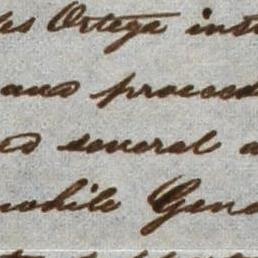 es Ortega inst
and proceed
ed several a
while Gene